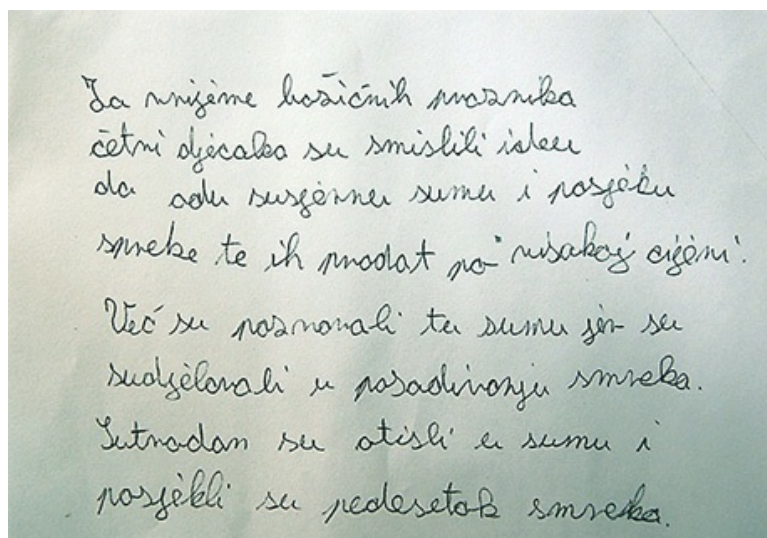 Za vrijeme božićnih praznika
četri dječaka su smislili ideu
da odu susjednu sumu i posjeku
smreke te ih prodat po visokoj cijeni.
Već su poznavali tu sumu jer su
sudjelovali u posađivanju smreka.
Sutradan su otisli u sumu i
posjekli su pedesetak smreka.